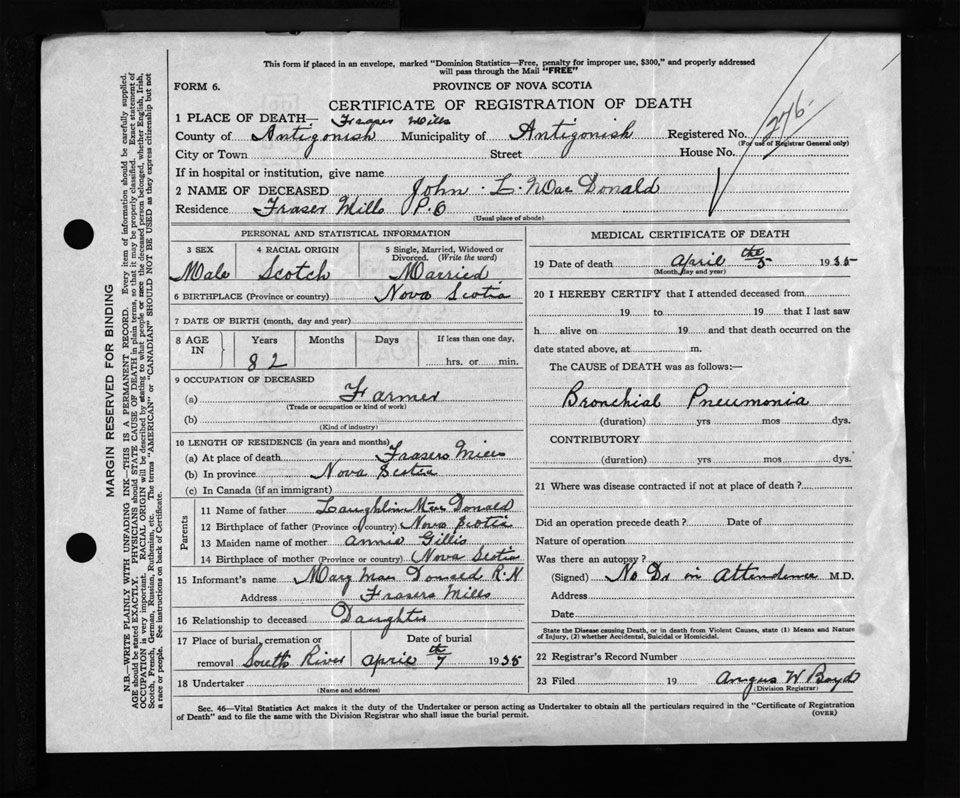 This form if placed in an envelope, marked "Dominion Statistics—Free, penalty for improper use, $300," and properly addressed
will pass through the Mail "FREE"
FORM 6.
PROVINCE OF NOVA SCOTIA
CERTIFICATE OF REGISTRATION OF DEATH
1 PLACE OF DEATH— Fraser Mills
County of Antigonish Municipality of Antigonish Registered No. 276
(For use of Registrar General only)
City or Town Street House No.
If in hospital or institution, give name
2 NAME OF DECEASED John L. MacDonald
Residence Fraser Mills P.O
(Usual place of abode)
PERSONAL AND STATISTICAL INFORMATION
3 SEX 4 RACIAL ORIGIN 5 Single, Married, Widowed or
Divorced. (Write the word)
Male Scotch Married
6 BIRTHPLACE (Province or country) Nova Scotia
7 DATE OF BIRTH (month, day and year)
8 AGE IN Years Months Days If less than one day,
82 hrs. or min.
9 OCCUPATION OF DECEASED
(a) Farmer
(Trade or occupation or kind of work)
(b)
(Kind of industry)
10 LENGTH OF RESIDENCE (in years and months)
(a) At place of death Frasers Mills
(b) In province Nova Scotia
(c) In Canada (if an immigrant)
Parents
11 Name of father Laughlin MacDonald
12 Birthplace of father (Province or country) Nova Scotia
13 Maiden name of mother Annie Gillis
14 Birthplace of mother (Province or country) Nova Scotia
15 Informant's name Mary MacDonald R.N
Address Frasers Mills
16 Relationship to deceased Daughter
17 Place of burial, cremation or Date of burial
removal South River April the 7 1935
18 Undertaker
(Name and address)
MEDICAL CERTIFICATE OF DEATH
19 Date of death April the 5 1935
(Month, day and year)
20 I HEREBY CERTIFY that I attended deceased from
19 to 19 that I last saw
h alive on 19 and that death occurred on the
date stated above, at m.
The CAUSE of DEATH was as follows:—
Bronchial Pneumonia
(duration) yrs mos dys.
CONTRIBUTORY
(duration) yrs mos dys.
21 Where was disease contracted if not at place of death?
Did an operation precede death? Date of
Nature of operation
Was there an autopsy?
(Signed) No Dr in attendence M.D.
Address
Date
State the Disease causing Death, or in death from Violent Causes, state (1) Means and Nature
of Injury, (2) whether Accidental, Suicidal or Homicidal.
22 Registrar's Record Number
23 Filed 19 Angus W Boyd
(Division Registrar)
Sec. 46—Vital Statistics Act makes it the duty of the Undertaker or person acting as Undertaker to obtain all the particulars required in the "Certificate of Registration
of Death" and to file the same with the Division Registrar who shall issue the burial permit.
(OVER)
MARGIN RESERVED FOR BINDING
N.B.—WRITE PLAINLY WITH UNFADING INK—THIS IS A PERMANENT RECORD. Every item of information should be carefully supplied.
AGE should be stated EXACTLY. PHYSICIANS should STATE CAUSE OF DEATH in plain terms, so that it may be properly classified. Exact statement of
OCCUPATION is very important. RACIAL ORIGIN will be described by stating to what people or race the deceased person belonged, whether English, Irish,
Scotch, French, German, Russian, Ruthenian, etc. The terms "AMERICAN" or "CANADIAN" SHOULD NOT BE USED as they express citizenship but not
a race or people. See instructions on back of Certificate.